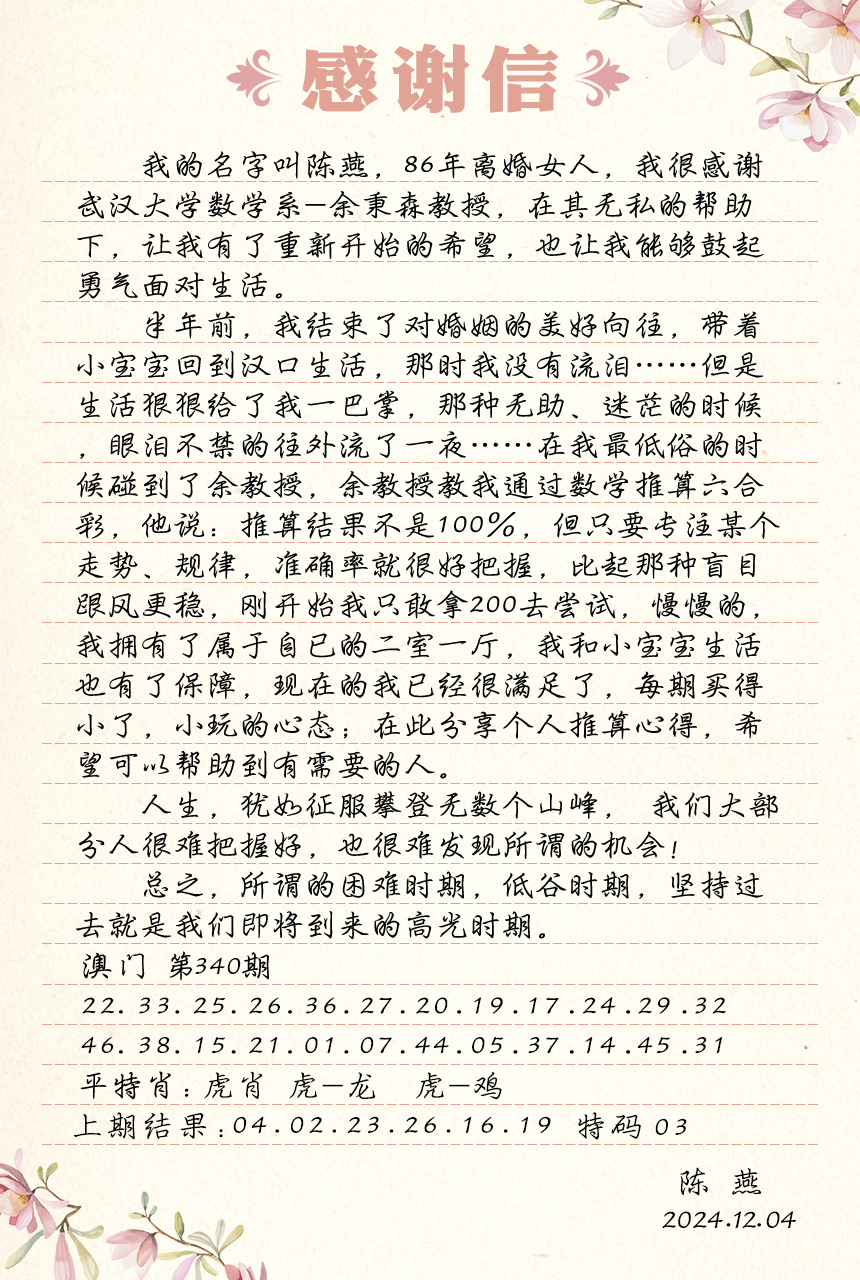 感谢信
我的名字叫陈燕，86年离婚女人，我很感谢
武汉大学数学系—余秉森教授，在其无私的帮助
下，让我有了重新开始的希望，也让我能够鼓起
勇气面对生活。
半年前，我结束了对婚姻的美好向往，带着
小宝宝回到汉口生活，那时我没有流泪……但是
生活狠狠给了我一巴掌，那种无助、迷茫的时候
，眼泪不禁的往外流了一夜……在我最低俗的时
候碰到了余教授，余教授教我通过数学推算六合
彩，他说：推算结果不是100%，但只要专注某个
走势、规律，准确率就很好把握，比起那种盲目
跟风更稳，刚开始我只敢拿200去尝试，慢慢的，
我拥有了属于自已的二室一厅，我和小宝宝生活
也有了保障，现在的我已经很满足了，每期买得
小了，小玩的心态；在此分享个人推算心得，希
望可以帮助到有需要的人。
人生，犹如征服攀登无数个山峰， 我们大部
分人很难把握好，也很难发现所谓的机会！
总之，所谓的困难时期，低谷时期，坚持过
去就是我们即将到来的高光时期。
澳门 第340期
22.33.25.26.36.27.20.19.17.24.29.32
46.38.15.21.01.07.44.05.37.14.45.31
平特肖：虎肖 虎—龙 虎—鸡
上期结果：04.02.23.26.16.19 特码 03
陈 燕
2024.12.04